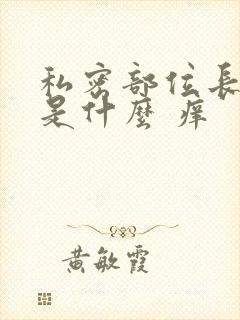 私密部位長
是什麼 痒
黃敏霞